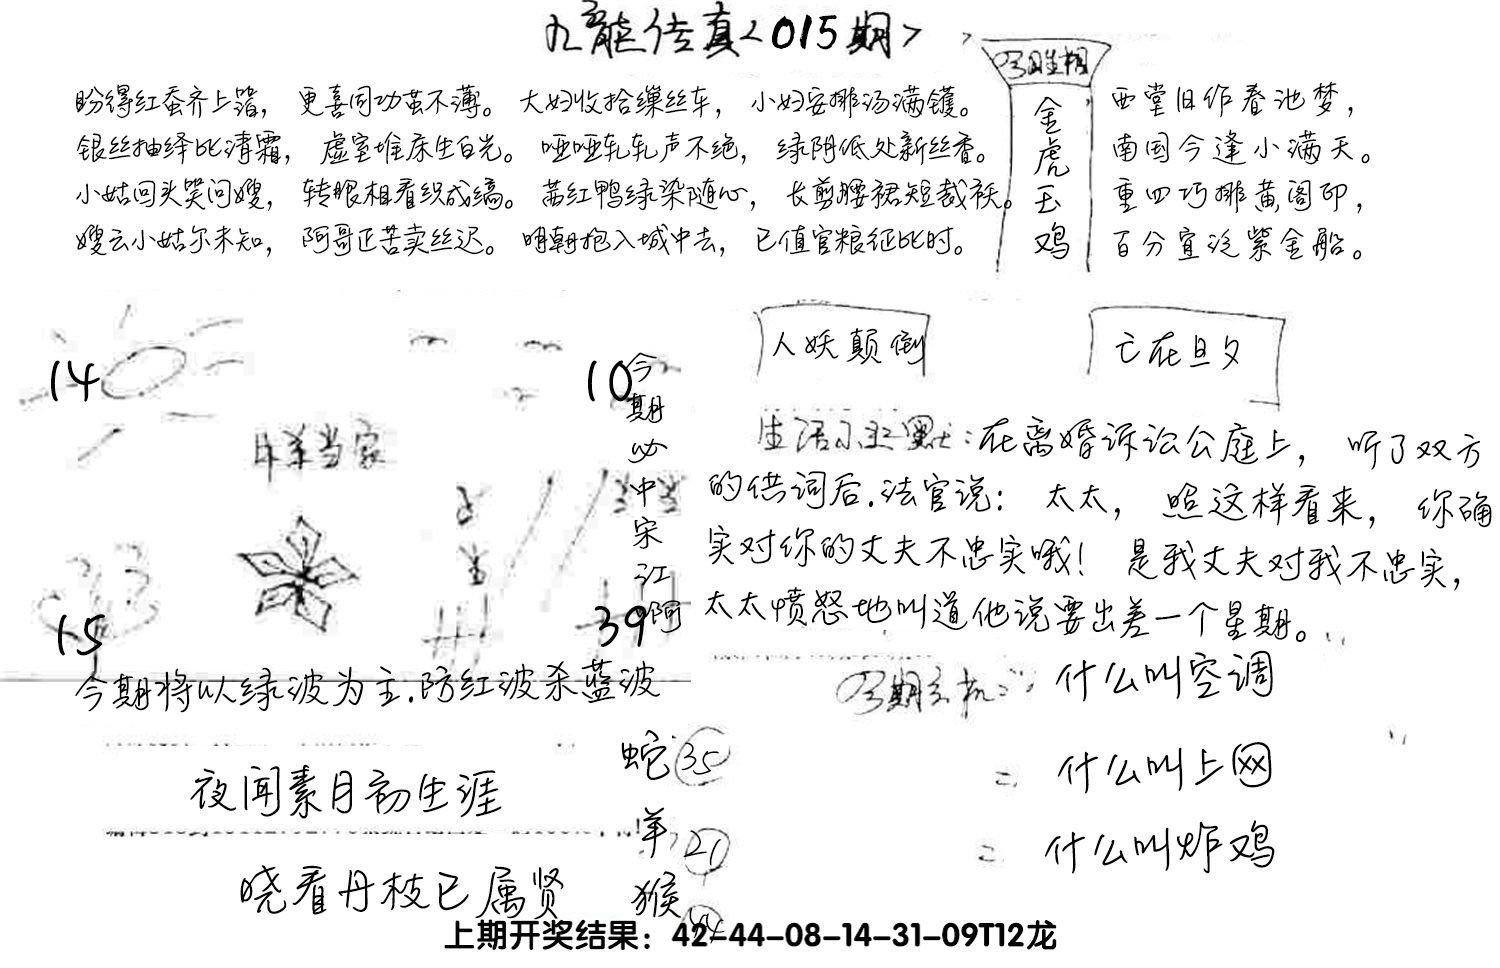 九龙传真<015期>
盼得红蚕齐上箔，更喜同功茧不薄。大妇收拾缫丝车，小妇安排汤满镬。
银丝抽绎比清霜，虚室堆床生白光。哑哑轧轧声不绝，绿阴低处新丝香。
小姑回头笑问嫂，转眼相看织成缟。茜红鸭绿染随心，长剪腰裙短裁袄。
嫂云小姑尔未知，阿哥正苦卖丝迟。明朝抱入城中去，已值官粮征比时。
金虎玉鸡
西堂旧作春池梦，
南国今逢小满天。
重四巧排黄阁印，
百分宜泛紫金船。
14
10
今期必中宋江啊
当家
15
39
今期将以绿波为主.防红波杀蓝波
人妖颠倒
亡在旦夕
生活 默：在离婚诉讼公庭上，听了双方
的供词后.法官说：太太，照这样看来，你确
实对你的丈夫不忠实哦！是我丈夫对我不忠实，
太太愤怒地叫道他说要出差一个星期。
什么叫空调
= 什么叫上网
= 什么叫炸鸡
夜闻素月初生涯
晓看丹枝已属贤
蛇 35
羊 21
猴
上期开奖结果：42-44-08-14-31-09T12龙